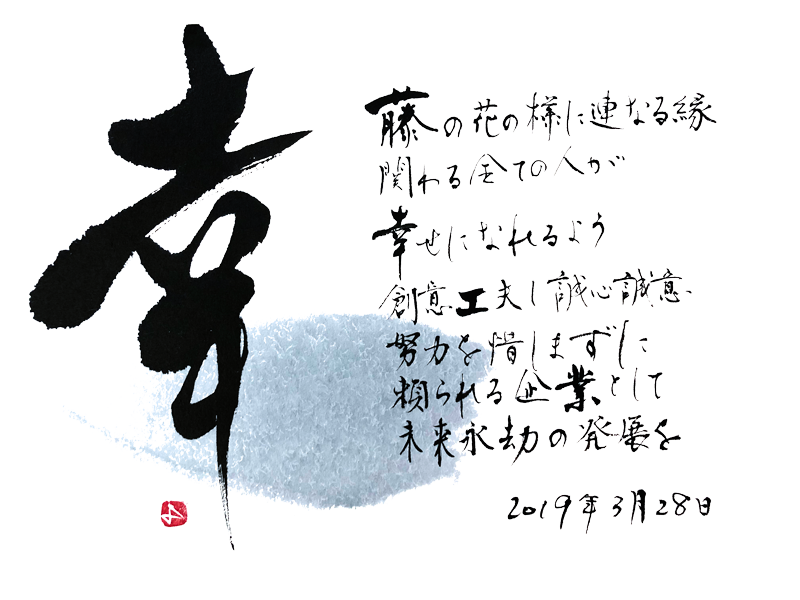 幸
藤の花の様に連なる縁
関わる全ての人が
幸せになれるよう
創意工夫し誠心誠意
努力を惜しまずに
頼られる企業として
未来永劫の発展を
2019年3月28日